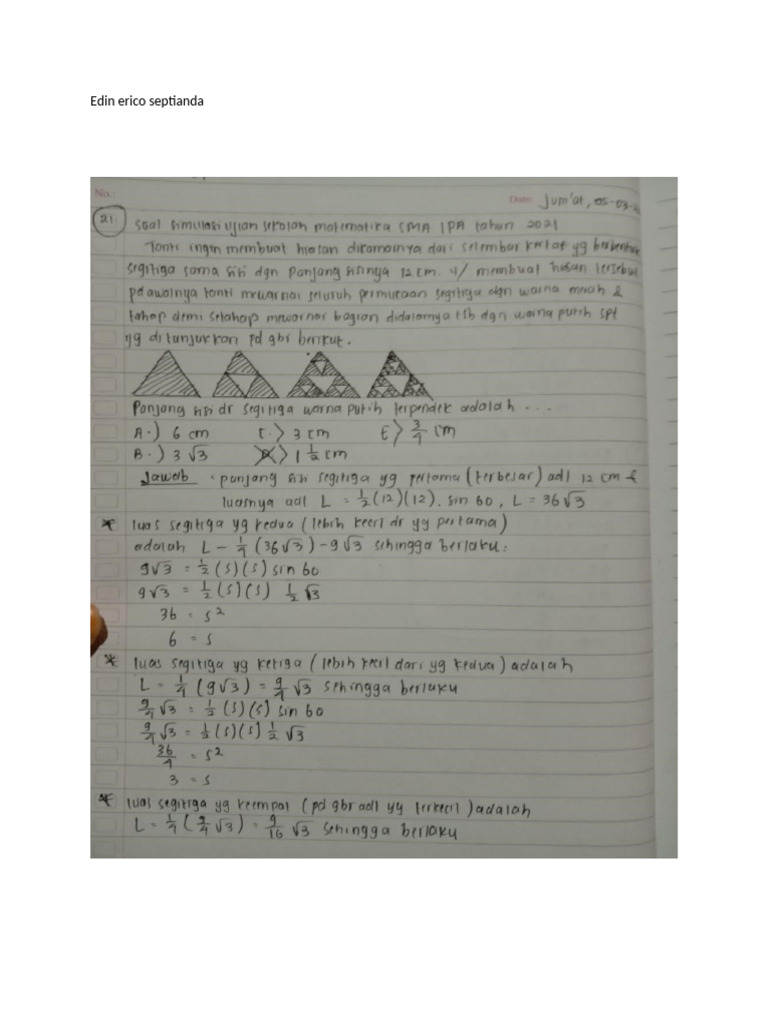 Edin erico septianda
No.:
Date: Jum'at, 05-03-
21. Soal simulasi ujian sekolah matematika SMA IPA tahun 2021
Tanti ingin membuat hiasan dikamarnya dari selembar kertas yg berbentuk
segitiga sama sisi dgn panjang sisinya 12 cm. U/ membuat hiasan tersebut
pd awalnya tanti mewarnai seluruh permukaan segitiga dgn warna merah &
tahap demi setahap mewarnai bagian didalamnya tsb dgn warna putih spt
yg ditunjukkan pd gbr berikut.
Panjang sisi dr segitiga warna putih terpendek adalah ...
A.) 6 cm C.> 3 cm E> 3/4 cm
B.) 3 √3 D.> 1 1/2 cm
Jawab · panjang sisi segitiga yg pertama (terbesar) adl 12 cm &
luasnya adl L = 1/2 (12)(12). sin 60, L = 36√3
* luas segitiga yg kedua (lebih kecil dr yg pertama)
adalah L - 1/4 (36√3) - 9√3 sehingga berlaku:
9√3 = 1/2 (s)(s) sin 60
9√3 = 1/2 (s)(s) 1/2 √3
36 = s²
6 = s
* luas segitiga yg ketiga (lebih kecil dari yg kedua) adalah
L = 1/4 (9√3) = 9/4 √3 sehingga berlaku
9/4 √3 = 1/2 (s)(s) sin 60
9/4 √3 = 1/2 (s)(s) 1/2 √3
36/4 = s²
3 = s
* luas segitiga yg keempat (pd gbr adl yg terkecil) adalah
L = 1/4 (9/4 √3) = 9/16 √3 sehingga berlaku